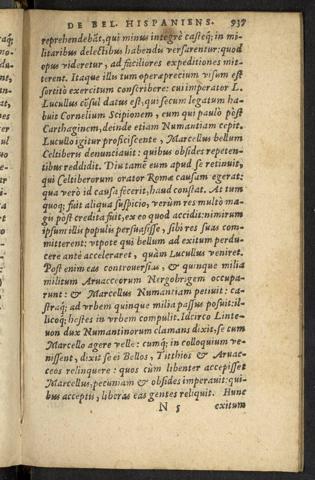 DE BEL. HISPANIENS. 937
reprehendebāt, qui minus integrè casteq́; in mi-
litaribus delectibus habendu versarentur: quod
opus videretur, ad faciliores expeditiones mit-
terent. Itaque illis tum operæprecium visum est
sortitò exercitum conscribere: cui imperator L.
Lucullus cōsul datus est, qui secum legatum ha-
buit Cornelium Scipionem, cum qui paulò pòst
Carthaginem, deinde etiam Numantiam cepit.
Lucullo igitur proficiscente, Marcellus bellum
Celtiberis denunciauit: quibus obsides repeten-
tibus reddidit. Diu tamē eum apud se retinuit,
qui Celtiberorum orator Romæ causam egerat:
qua verò id causa fecerit, haud constat. At tum
quoq; fuit aliqua suspicio, verùm res multò ma-
gis pòst credita fuit, ex eo quod accidit: nimirum
ipsum illis populis persuasisse, sibi res suas com-
mitterent: vtpote qui bellum ad exitum perdu-
cere antè acceleraret, quàm Lucullus veniret.
Post enim eas controuersias, & quinque milia
militum Aruaccorum Nergobrigem occupa-
runt: & Marcellus Numantiam petiuit: ca-
straq́; ad vrbem quinque milia passus posuit: il-
licoq́; hostes in vrbem compulit. Id circo Linte-
uon dux Numantinorum clamans dixit, se cum
Marcello agere velle: cumq́; in colloquium ve-
nissent, dixit se ei Bellos, Titthios & Aruac-
ceos relinquere: quos cùm libenter accepisset
Marcellus, pecuniam & obsides imperauit: qui-
bus acceptis, liberas eas gentes reliquit. Hunc
N 5 exitum